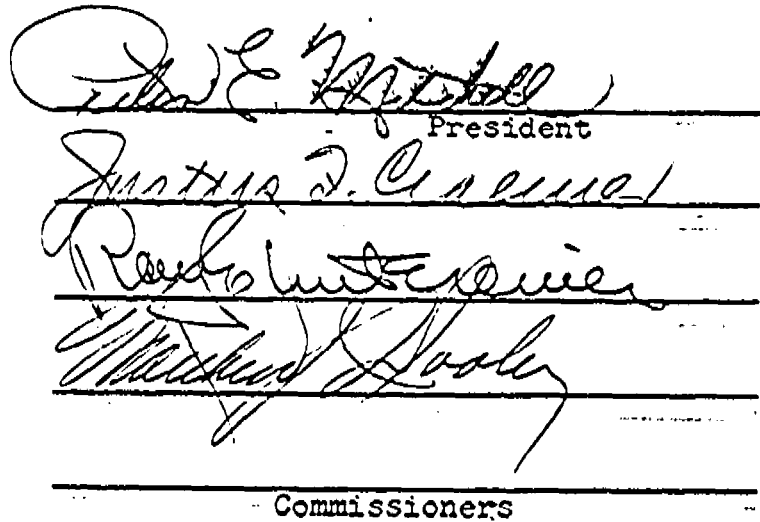 Peter E. Mitchell
President
Justus F. Craemer
Ray E. Untereiner
Matthew J. Dooley
Commissioners